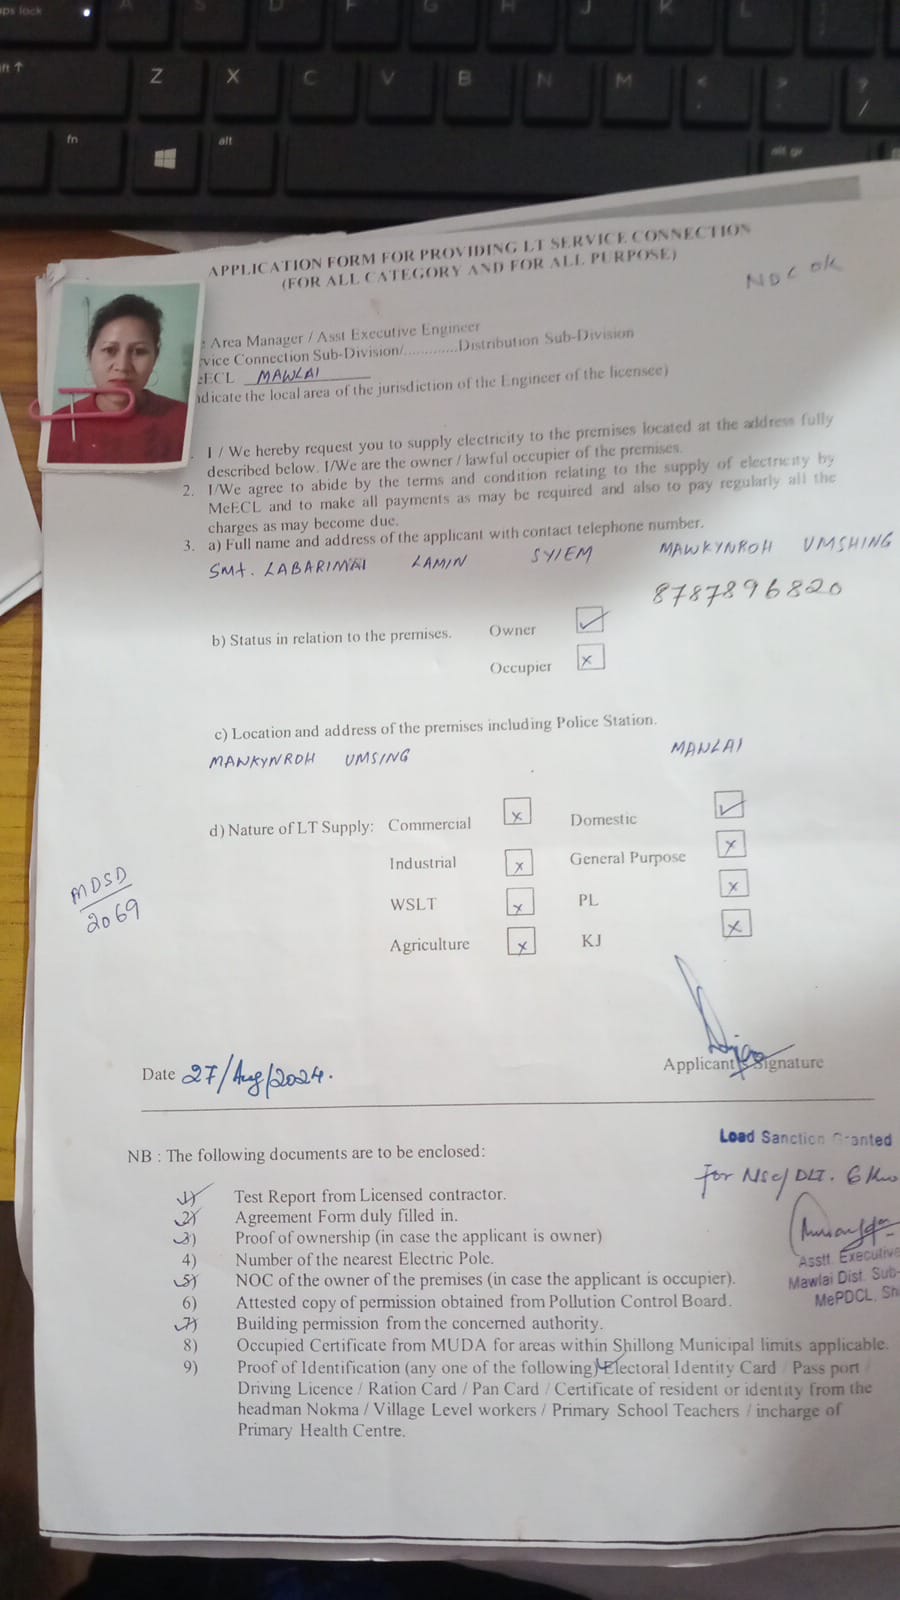 ps lock A S D F G H J K L
ft ↑ Z X C V B N M < > ?
/
fn alt alt gr
APPLICATION FORM FOR PROVIDING LT SERVICE CONNECTION
(FOR ALL CATEGORY AND FOR ALL PURPOSE)
NDC OK
Area Manager / Asst Executive Engineer
vice Connection Sub-Division/.............Distribution Sub-Division
ECL MAWLAI
dicate the local area of the jurisdiction of the Engineer of the licensee)
I / We hereby request you to supply electricity to the premises located at the address fully
described below. I/We are the owner / lawful occupier of the premises.
2. I/We agree to abide by the terms and condition relating to the supply of electricity by
MeECL and to make all payments as may be required and also to pay regularly all the
charges as may become due.
3. a) Full name and address of the applicant with contact telephone number.
SMT. LABARIMAI LAMIN SYIEM MAWKYNROH UMSHING
8787896820
b) Status in relation to the premises. Owner ✓
Occupier x
c) Location and address of the premises including Police Station.
MAWKYNROH UMSING MAWLAI
d) Nature of LT Supply: Commercial x Domestic ✓
Industrial x General Purpose x
WSLT x PL x
Agriculture x KJ x
MDSD
2069
Date 27/Aug/2024.
Applicant's Signature
Load Sanction Granted
for NSC/DLT. 6
NB : The following documents are to be enclosed:
1) Test Report from Licensed contractor.
2) Agreement Form duly filled in.
3) Proof of ownership (in case the applicant is owner)
4) Number of the nearest Electric Pole.
5) NOC of the owner of the premises (in case the applicant is occupier).
6) Attested copy of permission obtained from Pollution Control Board.
7) Building permission from the concerned authority.
8) Occupied Certificate from MUDA for areas within Shillong Municipal limits applicable.
9) Proof of Identification (any one of the following) Electoral Identity Card / Pass port /
Driving Licence / Ration Card / Pan Card / Certificate of resident or identity from the
headman Nokma / Village Level workers / Primary School Teachers / incharge of
Primary Health Centre.
Asstt. Executive
Mawlai Dist. Sub-
MePDCL, Sh